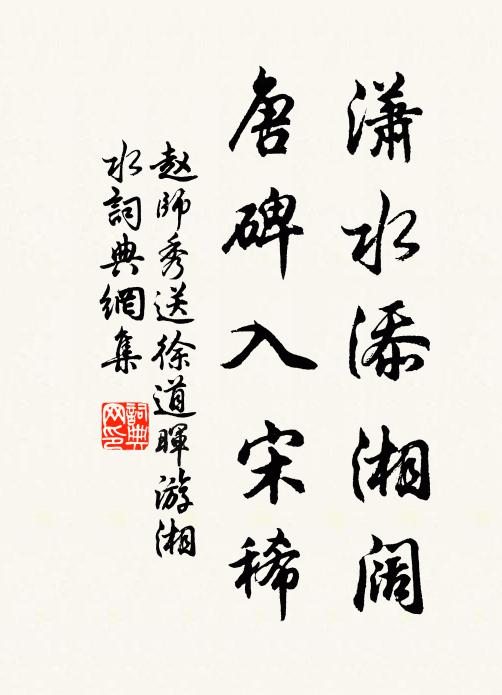 潇水添湘阔
唐碑入宋稀
赵师秀送徐道晖游湘
水詞典網集
詞典网印